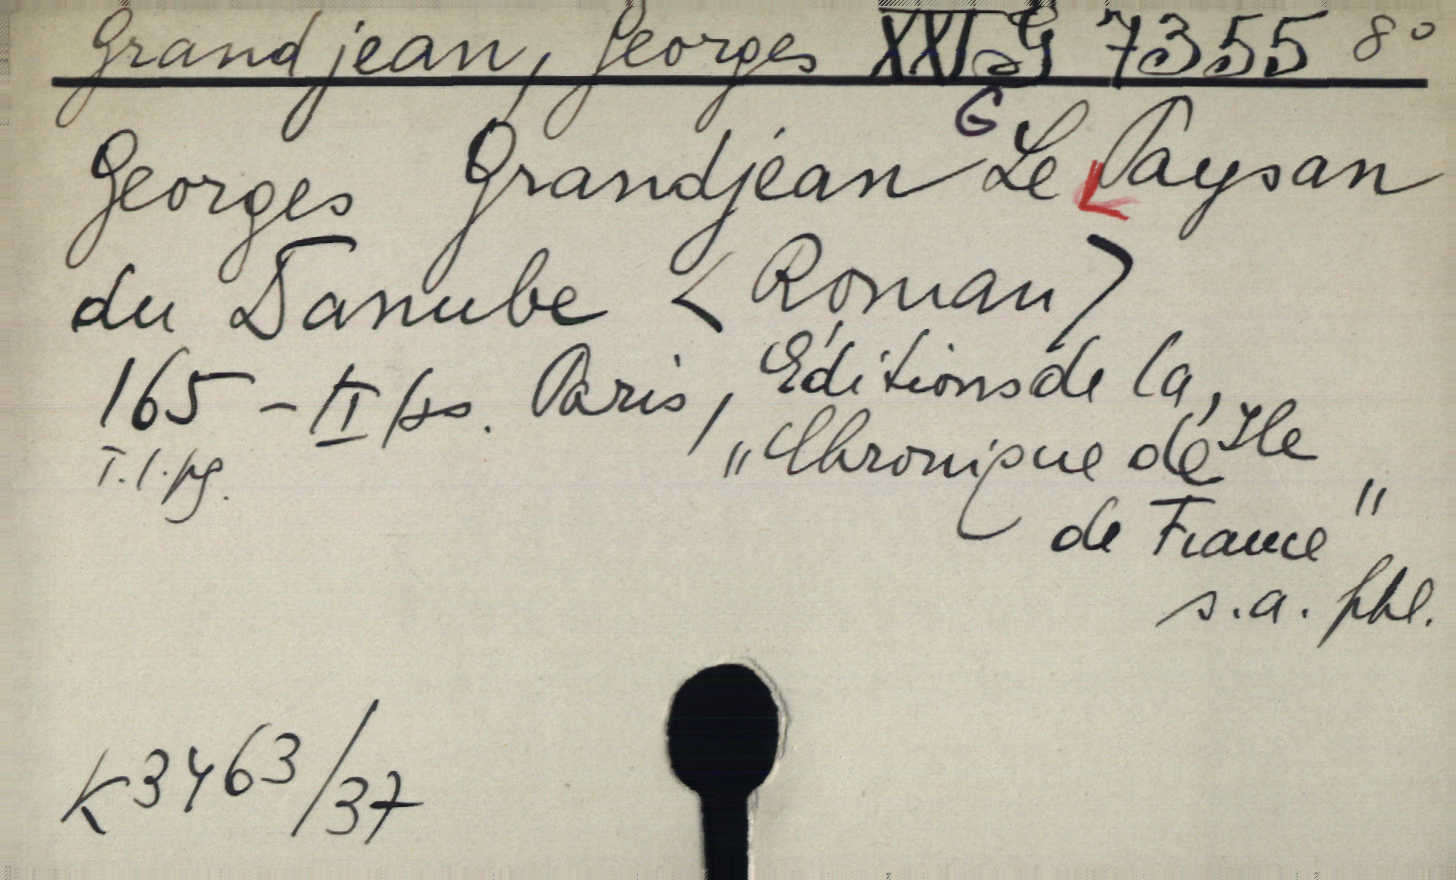 Grandjean, Georges XXI G 7355 8°
G
Georges Grandjean Le Paysan
du Danube <Roman>
165 - II ps. Paris, Editions de la
"Chronique de Ile
de France"
T.l.pg.
s.a. phl.
K 3463/37